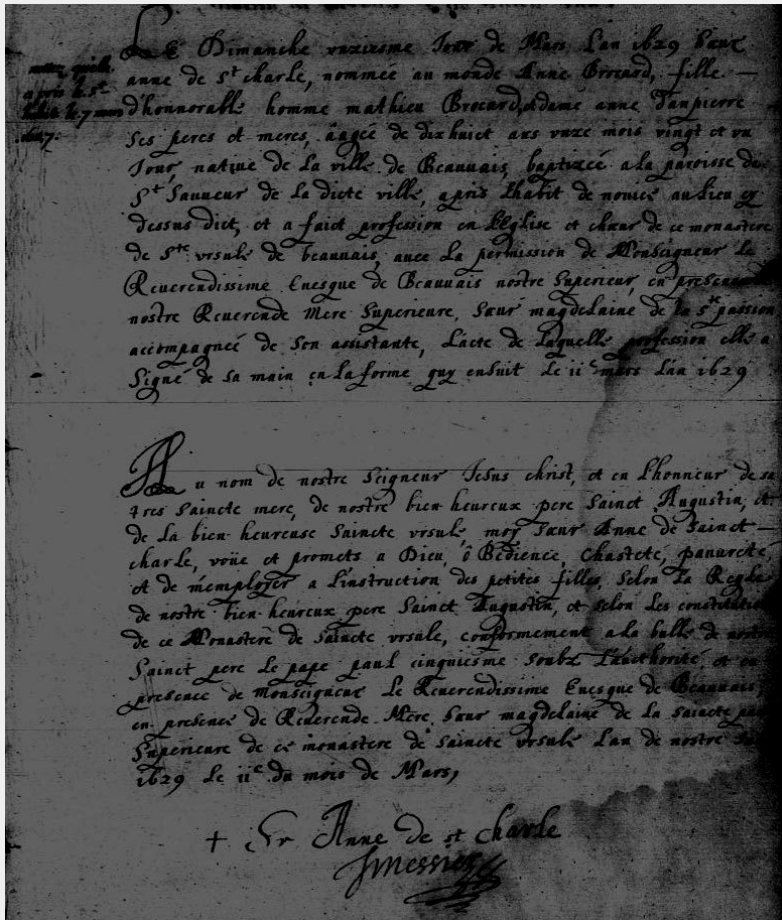 Le Dimanche unziesme Jour de Mars Lan 1629 Sœur
anne de St charle, nommée au monde Anne Brocard, fille
d'honnorable homme mathieu Brocard, et dame anne Danpierre
Ses peres et meres, aagée de dix huict ans unze mois vingt et un
Jour, native de La ville de Beauvais, baptizée a la paroisse de
St Sauveur de La dicte ville, apris Lhabit de novice au lieu cy
dessus dict, et a faict profession en L'Eglise et chœur de ce monastere
de Ste ursule de beauvais, avec La permission de Monseigneur Le
Reverendissime Evesque de Beauvais nostre Superieur, en presence
nostre Reverende Mere Superieure, Sœur magdelaine de la Ste passion
accompagneé de Son assistante, Lacte de Laquelle profession elle a
Signé de sa main en La forme quy ensuit Le iie mars Lan 1629
apris le St
habit le 7 mars
Au nom de nostre Seigneur Jesus christ, et en L'honneur de sa
tres Saincte mere, de nostre bien heureux pere Sainct Augustin, et
de La bien heureuse Saincte ursule, moy Sœur Anne de Sainct
charle, voüe et promets a Dieu, ô Bedience, Chasteté, pauvreté
et de m'employer a L'instruction des petites filles, Selon La Regle
de nostre bien heureux pere Sainct Augustin, et Selon Les constitution
de ce Monastere de Saincte ursule, conformement a la bulle de nostre
Sainct pere Le pape paul cinquiesme Soubz L'authorité, et en
presence de Monseigneur Le Reverendissime Evesque de Beauvais,
en presence de Reverende Mere, Sœur magdelaine de La Saincte
Superieure de ce monastere de Saincte ursule Lan de nostre
1629 Le iie du mois de Mars,
+ Sr Anne de st charle